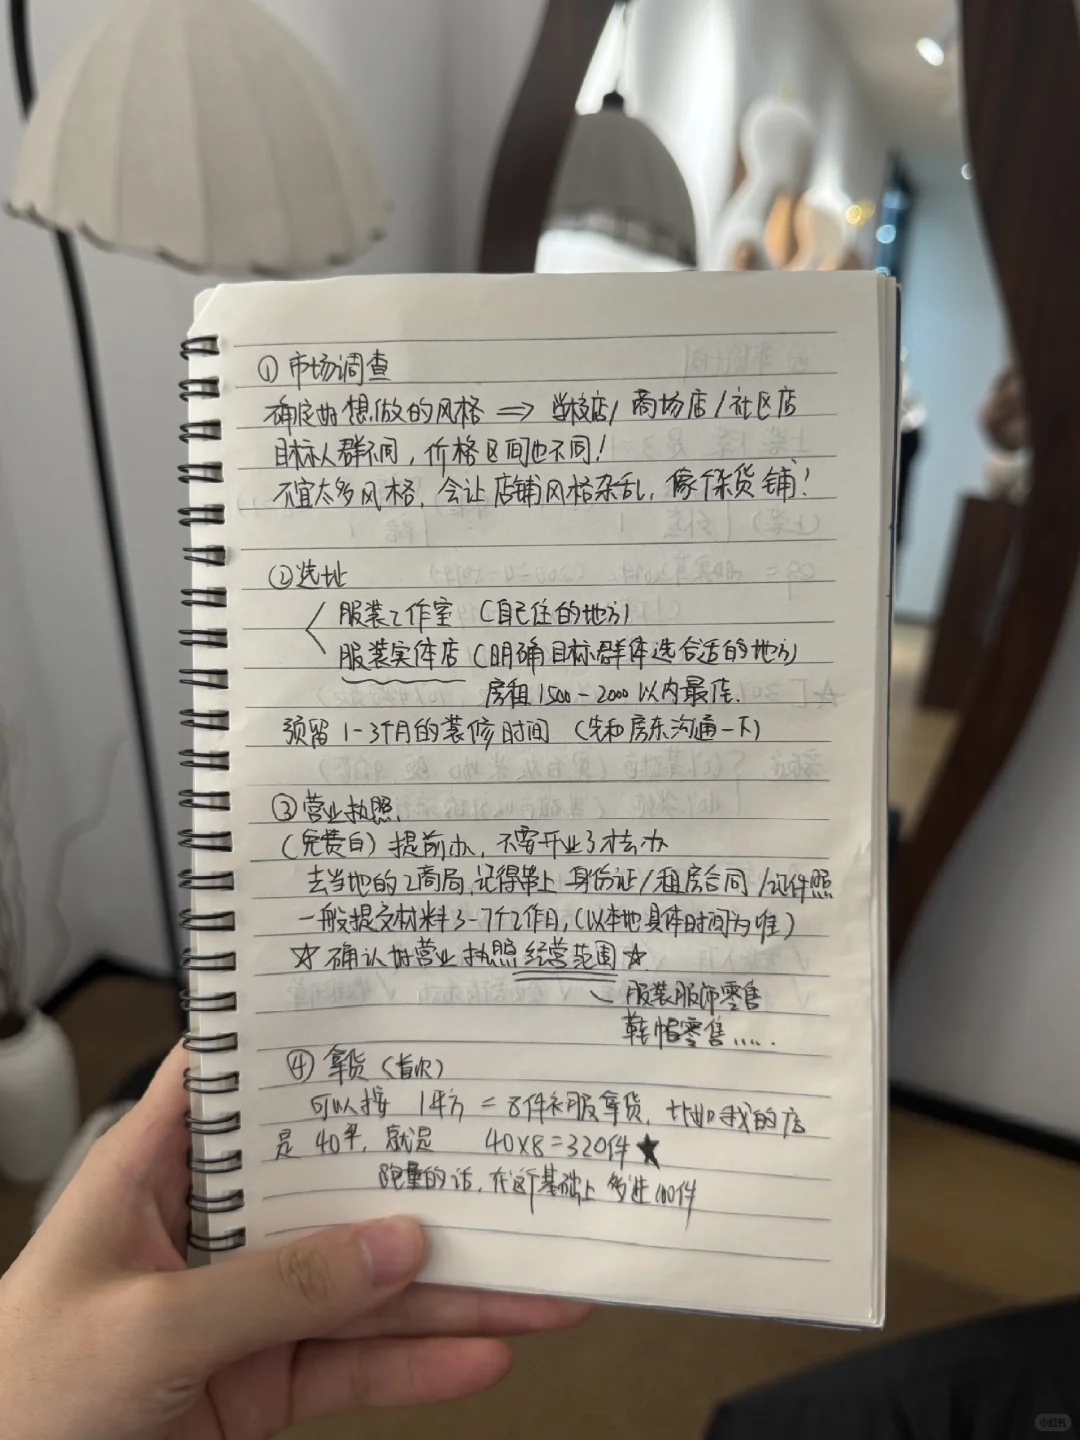 ① 市场调查
确定好想做的风格 => 学校店/商场店/社区店
目标人群不同，价格区间也不同！
不宜太多风格，会让店铺风格杂乱，像杂货铺！
②选址
服装工作室（自己住的地方）
服装实体店（明确目标群体选合适的地方）
房租1500-2000以内最佳.
预留1-3个月的装修时间（先和房东沟通一下）
③营业执照.
（免费自）提前办，不要开业了才去办
去当地的工商局，记得带上 身份证/租房合同/证件照
一般提交材料3-7个工作日，（以本地具体时间为准）
☆确认好营业执照经营范围☆
服装服饰零售
鞋帽零售.....
④ 拿货（首次）
可以按 1平方 = 8件衣服拿货，比如我的店
是40平，就是 40×8=320件★
跑量的话，在这个基础上多进100件
小红书